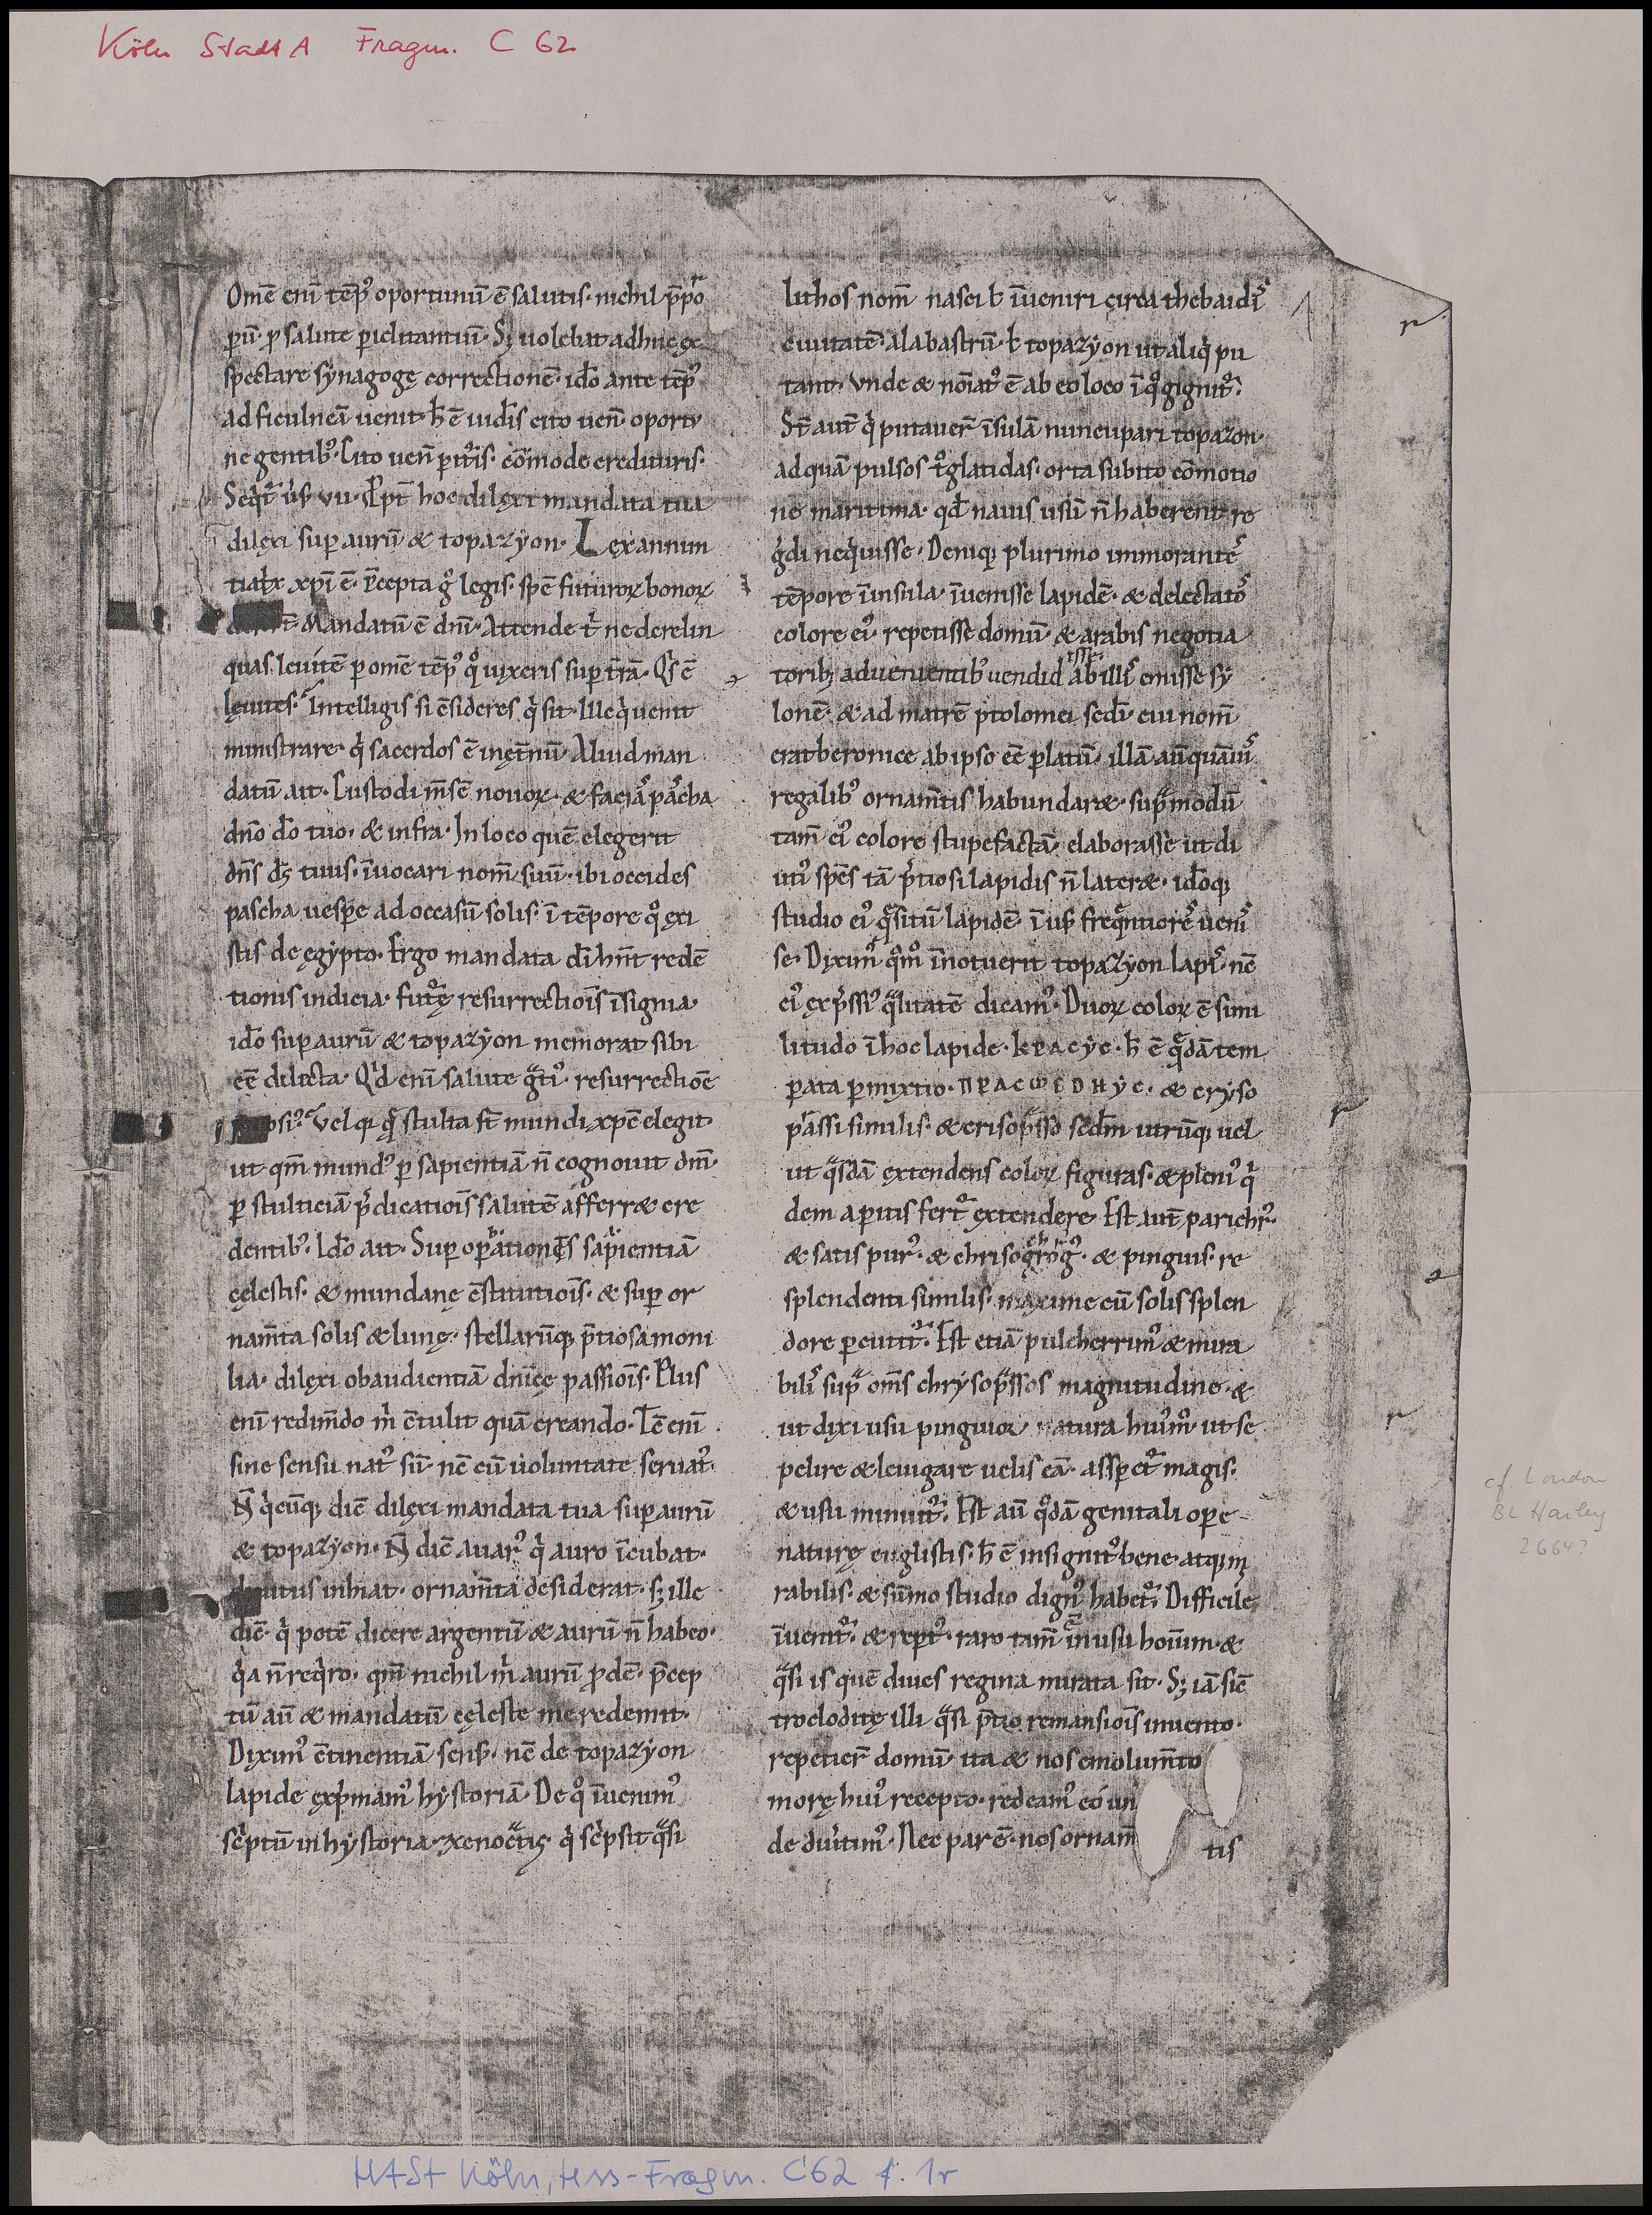 Köln StadtA Fragm. C 62
Omē eni tēpꝰ oportunū ē salutis· nichil p̄po
ꝑū· ꝓ salute ꝑiclitantiū· Sꝫ uolebat adhuc ex
spectare synagogę correctionē· ido̅ ante tēpꝰ
ad ficulneā uenit· h̄ ē iudi̅s cito uen̅· oportu
ne gentibꝰ· Cito uen̅ ꝑit̊is· co̅mode credituris·
dilexi suꝑ aurū & topazyon· Lex annun
tiat̅x xp̅i ē· p̅cepta gͦ legis· spē futuroꝝ bonoꝝ
Mandatū ē dn̅i· Attende t̍ ne derelin
quas leuitē ꝑ omē tēpꝰ qͦ uixeris suꝑ t̅rā· Qͥs ē
leuites· Intelligis si ɔ̅sideres qͥ sit· Ille qͥ uenit
ministrare· qͥ sacerdos ē inęt̅nū· Aliud man
datū ait· Custodi m̅sē nouoꝝ· & faciaˢ paˢcha
dn̅o d̅o tuo· & infra· In loco quē elegerit
dn̅s d̅s tuus· īuocari nom̅ suū· ibi occides
pascha uesꝑe ad occasū solis· ī tēpore qͦ exi
stis de egypto· Ergo mandata d̅i hn̅t redē
tionis indicia· fut̊ę resurrectioīs īsignia·
ido̅ suꝑ aurū & topazyon memorat sibi
eē dilecta· Qͥd eni̅ salute gᵃtiꝰ· resurrectiōe
Vel qꝫ qͣ stulta st̅ mundi xp̅c elegit·
ut qm̅ mundꝰ ꝑ sapientiā n̅ cognouit dm̅·
ꝑ stulticiā p̍dicatioīs salutē afferr& cre
dentibꝰ· Ido̅ ait· Suꝑ oꝑationes sapientiā
cęlestis· & mundanę ɔ̅stitutioīs· & suꝑ or
nam̅ta solis & lunę· stellarūqꝫ p̅tiosa moni
lia· dilexi obaudientiā dn̅icę passioīs· Plus
eni̅ redim̅do m̍ ɔ̅tulit quā creando·
sine sensu natꝰ sū· nc̅ cū uoluntate seruatꝰ·
N̅ qͥcūqꝫ dic̅ dilexi mandata tua suꝑ aurū
& topazyon· N̅ dic̅ auarꝰ qͥ auro īcubat·
inhiat· ornam̅ta desiderat· sꝫ ille
dic̅· qͥ potē dicere argentū & aurū n̅ habeo·
qͥa n̅ reqͥro· qm̅ nichil m̍ aurū ꝓdē· p̅cep
tū aū & mandatū cęleste me redemit·
Diximꝰ ɔ̅tinentiā sens̅· nc̅ de topazyon
lapide exp̍mamꝰ hystoriā· De qͦ īuenimꝰ
sc̍ptū in hystoria· xenocᵃtis· qͥ sc̍psit qᵃsi
lithos nom̅ nasci ł īueniri circa thebaidiˢ
ciuitatē· alabastrū· ł topazyon ut aliqͥ pu
tant· Vnde & noīatꝰ ē ab eo loco ī qͦ gignit̊·
St̅ aut̅ qͥ putauer̅ īsulā nuncupari topazon·
ad quā pulsos tͦglatidas· orta subito cōmotio
ne maritima· qd̅ nauis usū n̅ haberent re
gͤdi neqͥuisse· Deniqꝫ plurimo immorantēˢ
tēpore īinsula· īuenisse lapidē· & delectatoˢ
colore eiꝰ repetisse domū· & arabis negotia
toribꝫ aduenientibꝰ uendidisse ab illiˢ emisse fy
lonē· & ad matrē ptolomei· scdi̅· cui nom̅
erat beronice ab ipso eē ꝑlatū· illā aū quāuiˢ
regalibꝰ ornam̅tis habundar&· supᵃmodū
tam̅ eiꝰ colore stupefactā· elaborasse ut di
utiꝰ spe̅s tā p̍tiosi lapidis n̅ later&· ido̅qꝫ
studio eiꝰ qᵃsitū lapidē· ī us̅ freqͤntiorē uenis
se· Diximꝰ qͦmͦ īnotuerit topazyon lapiˢ· nc̅
eiꝰ exp̍ssiꝰ qᵃlitatē dicamꝰ· Duoꝝ coloꝝ ē simi
litudo ī hoc lapide· ΚΡΑϹΥϹ· h̄ ē qᵃdā tem
ꝑata ꝑmixtio· ΠΡΑϹΦΕΟΗΥϹ· & cryso
pᵃssi similis· & crisopᵃsso scdm̅ utrūqꝫ uel
ut qᵃsdā extendens coloꝝ figuras· & pleniꝰ qͥ
dem aꝑtis fert̊ extendere· Est aut̅ parichrꝰ·
& satis purꝰ· & pinguis· re
splendenti similis· maxime cū solis splen
dore ꝑcutit̊· Est etiā pulcherrimꝰ & mira
biliˢ supᵃ om̅s chrysopᵃssos magnitudine· &
ut dixi usu pinguior natura huiꝰmͦ· ut se
pelire & leuigare uelis eā· aspꝑet̊ magis·
& usu minuit̊· Est aū qͦdā genitali oꝑe
naturę euglistis· h̄ ē insignitꝰ bene· atqꝫ mi
rabilis· & sūmo studio dignꝰ habet̊· Difficile
īuenit̊· & repͭ̊· raro tam̅ in usu hoīum· &
qᵃsi is quē diues regina mirata sit· Sꝫ iā sic̅
troclodite illi qᵃsi p̅tio remansioīs inuento·
repetier̅ domū· ita & nos emolum̅to
morę huiꝰ recepto· redeamꝰ eo un
de diu̍timꝰ· Nec par ē· nos ornam̅ tis
cf London
BL Harley
2664?
HASt Köln, Hss-Fragm. C62 f. 1r